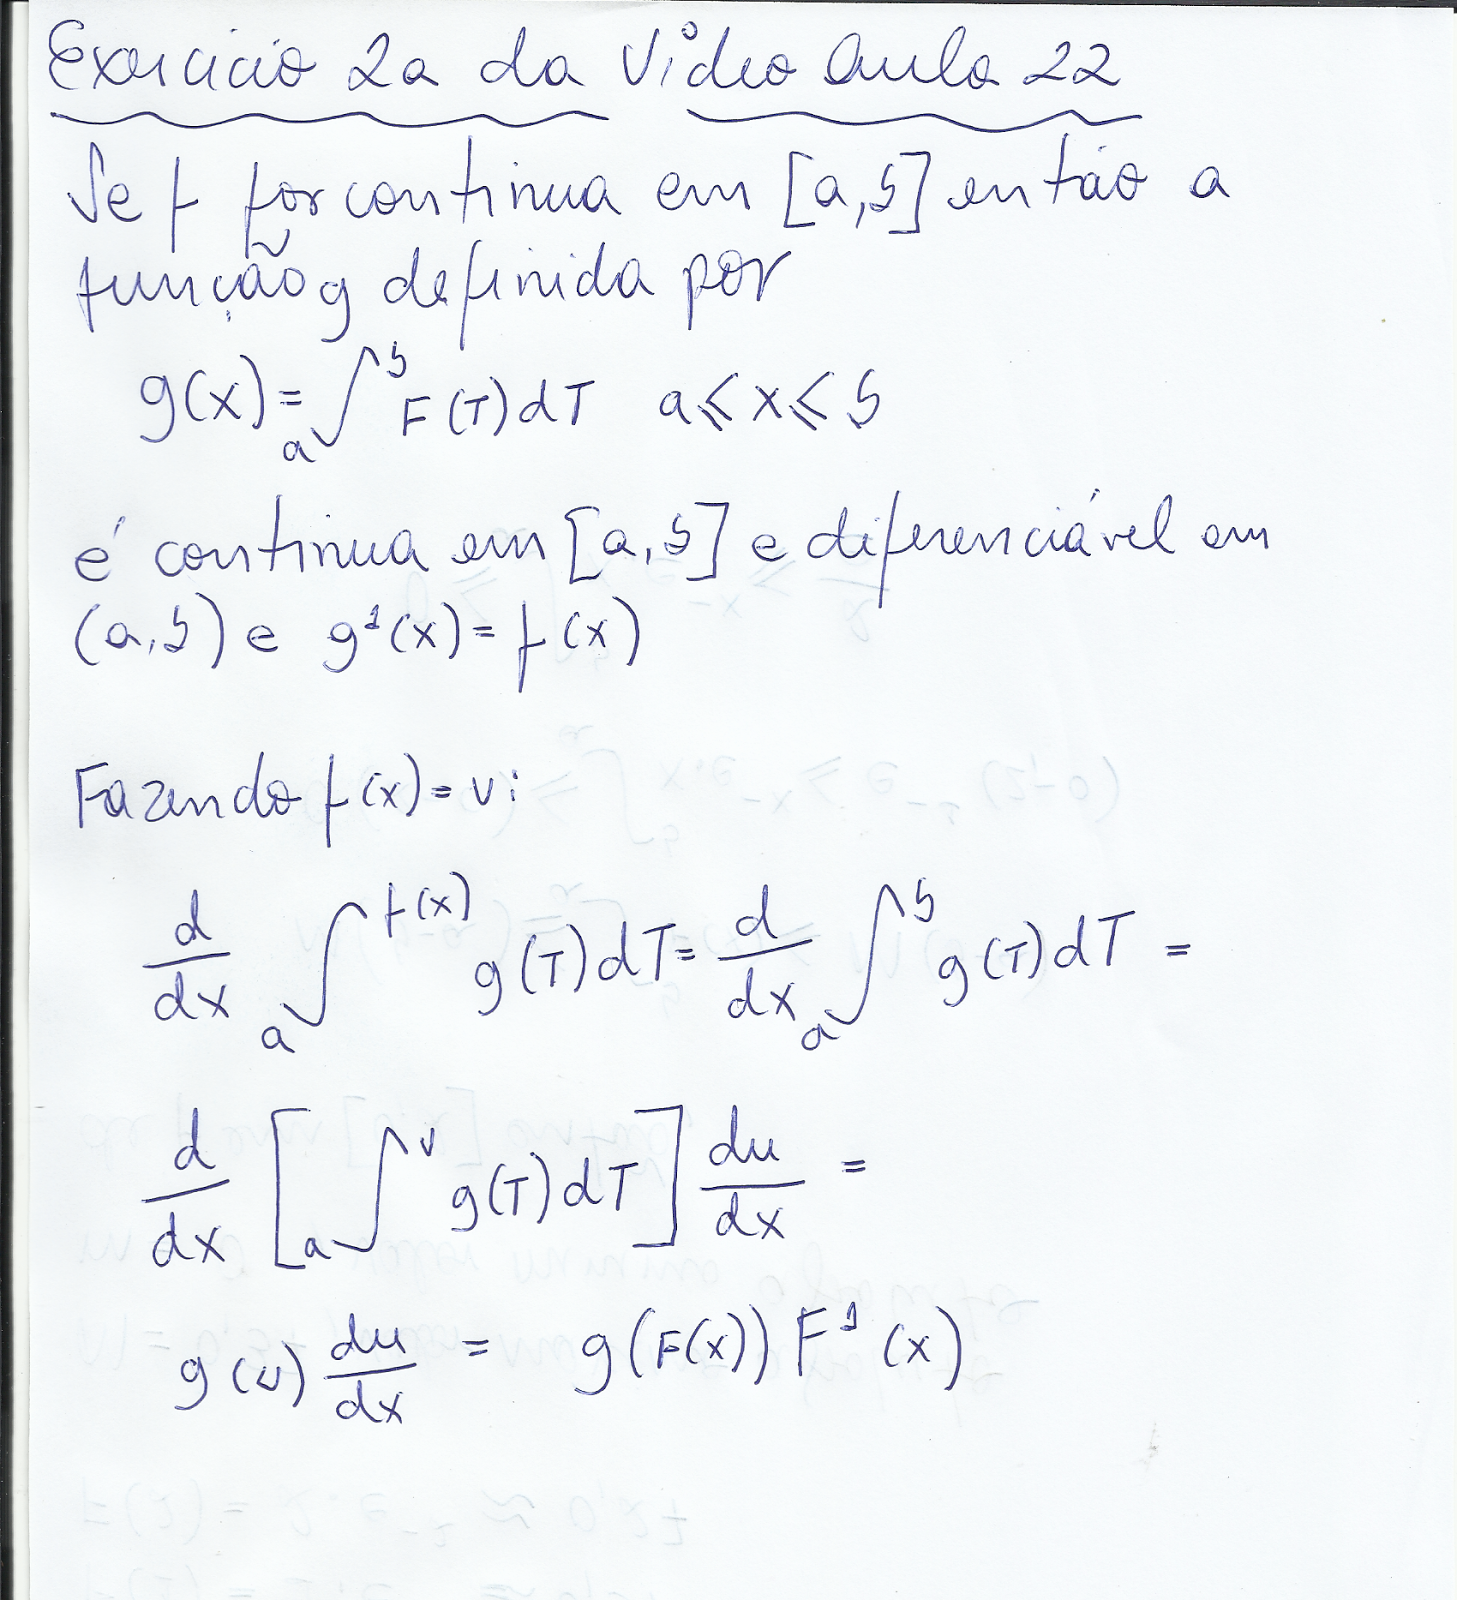 Exercicio 2a da Vídeo Aula 22
Se f for continua em [a,b] então a
função g definida por
g(x) = ₐ∫ᵇ F(T)dT a ⩽ x ⩽ b
é continua em [a,b] e diferenciável em
(a,b) e g¹(x) = f(x)
Fazendo f(x) = v:
d/dx ₐ∫^f(x) g(T)dT = d/dx ₐ∫ᵇ g(T)dT =
d/dx [ₐ∫ᵛ g(T)dT] du/dx =
g(v) du/dx = g(F(x)) F¹(x)